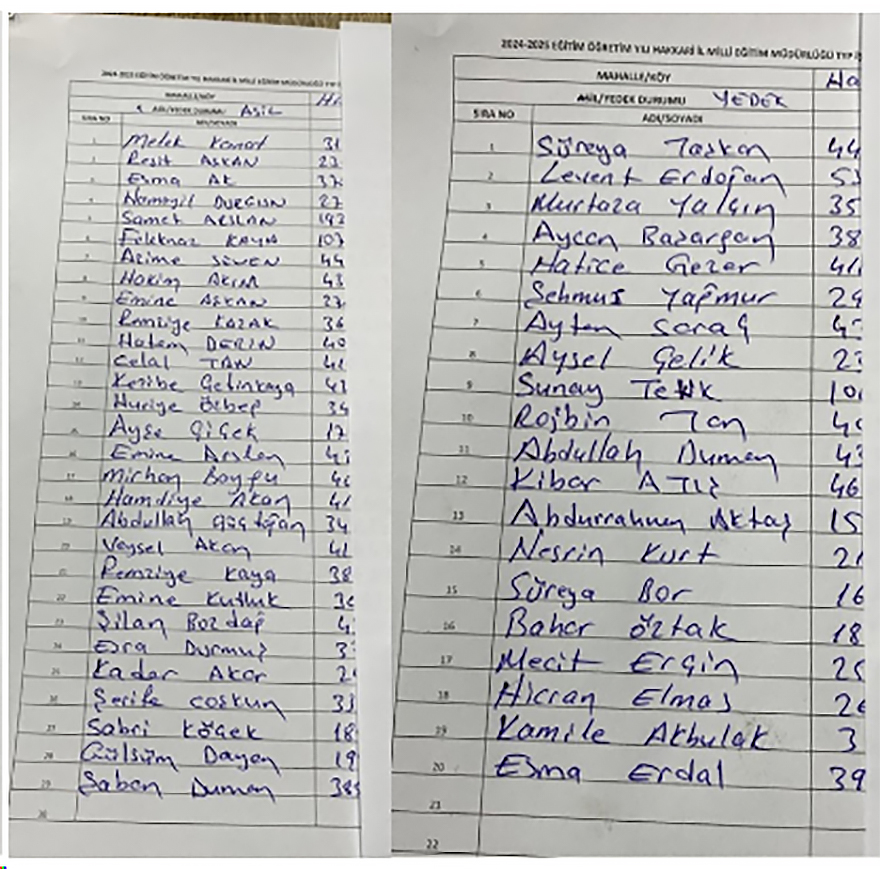 2024-2025 EĞİTİM ÖĞRETİM YILI HAKKARİ İL MİLLİ EĞİTİM MÜDÜRLÜĞÜ TYP
MAHALLE/KÖY
ASİL/YEDEK DURUMU ASİL
SIRA NO ADI/SOYADI
1 Melek Kanat 31
2 Reşit ASKAN 23
3 Esma AK 37
4 DURGUN 27
5 Samet ARSLAN 193
6 Feleknaz KAYA 107
7 Azime SEVEN 44
8 Hakim AKIN 43
9 Emine ASKAN 27
10 Remziye KAZAK 36
11 Hatem DERİN 40
12 Celal TAN 41
13 Çetinkaya 43
14 Nuriye 34
15 Ayşe Çiçek 17
16 Emine Arslan 41
17 Mirhan 40
18 Hamdiye Akan 41
19 Abdullah 34
20 Veysel Akan 41
21 Remziye Kaya 38
22 Emine Kutluk 36
23 Şilan Bozdağ
24 Esra Durmuş
25 Kader Akar
26 Şerife COŞKUN 33
27 Sabri KÖÇEK 18
28 Gülsüm Dayan 19
29 Şaban Duman 385
30
2024-2025 EĞİTİM ÖĞRETİM YILI HAKKARİ İL MİLLİ EĞİTİM MÜDÜRLÜĞÜ TYP
MAHALLE/KÖY Ha
ASİL/YEDEK DURUMU YEDEK
SIRA NO ADI/SOYADI
1 Süreya Taşkan 44
2 Levent Erdoğan 53
3 Murtaza Yalçın 35
4 Aycan Bazargan 38
5 Hatice Gezer 41
6 Şehmus Yağmur 24
7 Ayten Saraç 43
8 Aysel Çelik 23
9 Sunay Tekik 10
10 Rojbin Tan 40
11 Abdullah Duman 43
12 Kibar 46
13 Abdurrahman Aktaş 15
14 Nesrin Kurt 21
15 Süreya Bor 16
16 Bahar Öztak 18
17 Mecit Ergin 25
18 Hicran Elmas 26
19 Kamile Akbulak 3
20 Esma Erdal 39
21
22